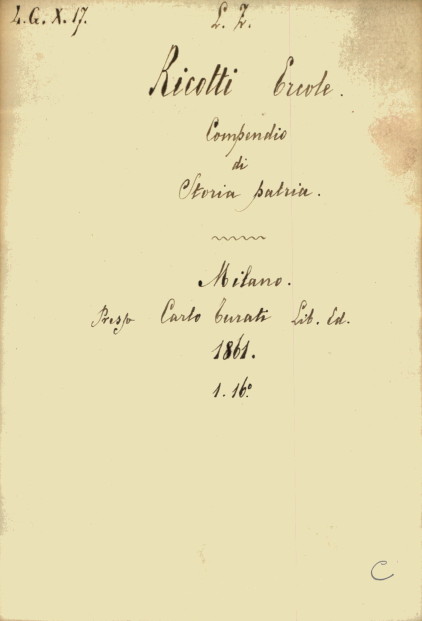 L. G. X. 17.
L. Z.
Ricotti Ercole.
Compendio
di
Storia patria.
Milano.
Presso Carlo Turati Lib. Ed.
1861.
1. 16º
C